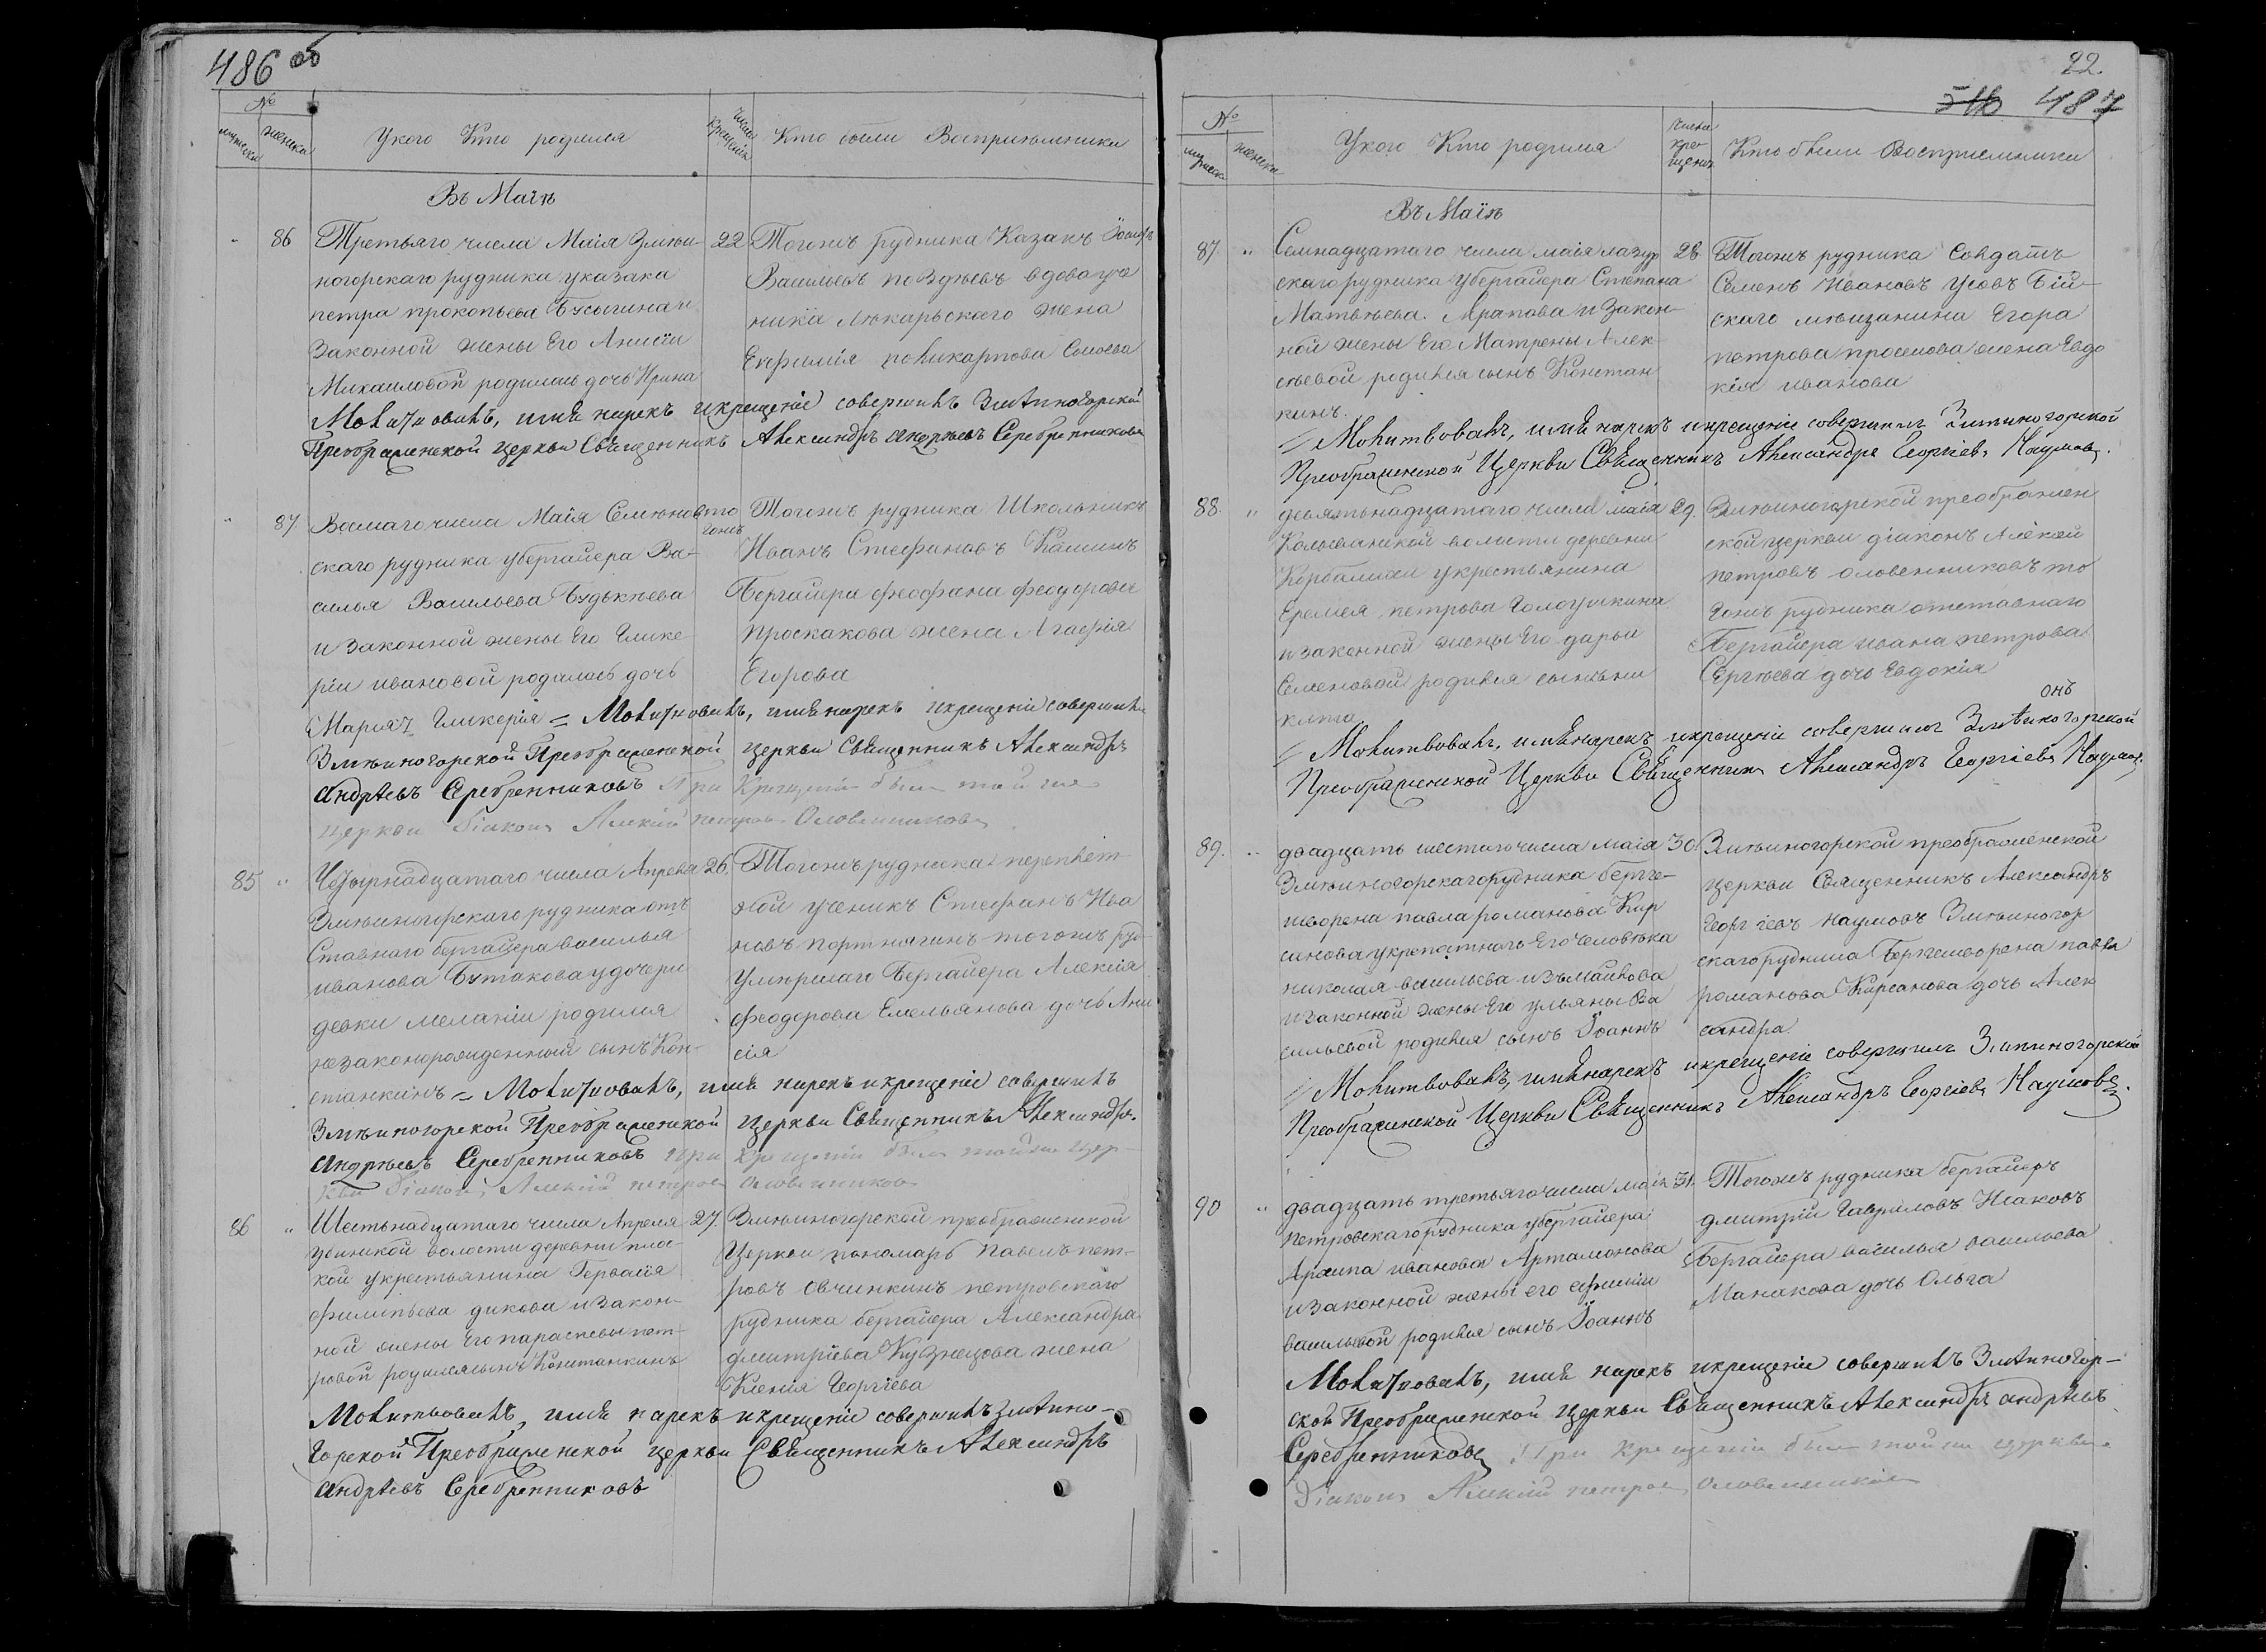 486 об
№
мужеска
женска
У кого Кто родился
Число Крещенія
Кто были Восприемники
Въ Маіѣ
86
Третьяго числа Маія Змѣи-
ногорскаго рудника у казака
петра прокопьева Бусыгина и
Законной жены Его Анисіи
Михаиловой родилась дочь Ирина
22
Тогожъ рудника Казакъ Іосифъ
Васильевъ поздѣевъ вдоваго уче
ника лѣкарьскаго жена
Евфимія поликарпова Сысоева
Молитвовалъ, имя нарекъ и крещеніе совершилъ Змѣиногорской
Преображенской церкви Священникъ Александръ Андрѣевъ Серебренниковъ
87
Восмаго числа Маія Семенов
скаго рудника у бергайера Ва-
силья Васильева Будькѣева
и Законной жены Его Глике
ріи ивановой родилась дочь
Марія Гликерія = Молитвовалъ, имя нарекъ и крещеніе совершилъ
тогожъ
Тогожъ рудника Школьникъ
Иванъ Стефановъ Кашинъ
Бергайера феофана феодорова
проскакова жена Агафія
Егорова
Змѣиногорской Преображенской церкви Священникъ Александръ
Андрѣевъ Серебренниковъ При Крещеніи былъ той же
церкви діаконъ Алексій петровъ Оловянниковъ
85
Четырнадцатаго числа Апреля
Змѣиногорскаго рудника от
Ставнаго бергайера василья
иванова Бутакова у дочери
девки меланіи родился
незаконорожденный сынъ Кон-
стантинъ = Молитвовалъ, имя нарекъ и крещеніе совершилъ
26
Тогожъ рудника переплет
ной ученикъ Стефанъ Ива
новъ портнягинъ тогожъ руд
умершаго Бергайера Алексія
феодорова Емельянова дочь Ани
сія
Змѣиногорской Преображенской церкви Священникъ Александръ
Андрѣевъ Серебренниковъ при крещеніи былъ тойже цер-
кви діаконъ Алексій петровъ Оловянниковъ
86
Шестьнадцатаго числа Апреля
волости деревни плос-
кой у крестьянина Гервасія
филипьева дикова и закон-
ной жены Его параскевы пет-
ровой родился сынъ Константинъ
27
Змѣиногорской преображенской
Церкви пономарь павелъ пет-
ровъ Овчинкинъ петровскаго
рудника бергайера Александра
дмитріева Кузнецова жена
Ксенія Георгіева
Молитвовалъ, имя нарекъ и крещеніе совершилъ Змѣино-
горской Преображенской церкви Священникъ Александръ
Андрѣевъ Серебренниковъ
22.
516 487
№
мужеска
женска
У кого Кто родился
Числа кре-щенія
Кто были Восприемники
Въ Маіѣ
87
Семнадцатаго числа маія лазур
скаго рудника у бергайера Степана
Матвѣева Арапова и Закон-
ной жены Его Матрены Алек
сѣевой родился сынъ Констан
тинъ.
28
Тогожъ рудника Солдатъ
Семенъ Ивановъ Усовъ Бій-
скаго мѣщанина Егора
петрова жена Евдо
кія иванова
Молитвовалъ, имя нарекъ и крещеніе совершилъ Змѣиногорской
Преображенской Церкви Священникъ Александръ Георгіевъ Наумовъ.
88.
девятьнадцатаго числа маія
Колыванской волости деревни
Корбалихи у крестьянина
Еремея петрова Гологушкина
и законной жены Его дарьи
Семеновой родился сынъ ни
кита
29.
Змѣиногорской преображен
ской церкви діаконъ Алексій
петровъ оловенниковъ то
гожъ рудника отставнаго
Бергайера ивана петрова
Сергѣева дочь Евдокія
онъ
Молитвовалъ, имя нарекъ и крещеніе совершилъ Змѣиногорской
Преображенской Церкви Священникъ Александръ Георгіевъ Наумовъ.
89.
двадцать шестаго числа маія
Змѣиногорскаго рудника берге-
шворена павла романова Кир
санова у крепостнаго Его человѣка
николая васильева измаилова
и законной жены Его ульяны Ва
сильевой родился сынъ Іоаннъ
30
Змѣиногорской преображенской
церкви Священникъ Александръ
Георгіевъ наумовъ Змѣиногор
скаго рудника Бергешворена павла
романова Кирсанова дочь Алек
сандра
Молитвовалъ, имя нарекъ и крещеніе совершилъ Змѣиногорской
Преображенской Церкви Священникъ Александръ Георгіевъ Наумовъ.
90
двадцать третьяго числа маія
петровскаго рудника у бергайера
Архипа иванова Артамонова
и законной жены его ефиміи
васильевой родился сынъ Іоаннъ
31.
Тогожъ рудника бергайеръ
дмитрій Гавриловъ Исаковъ
Бергайера василья васильева
Манакова дочь Ольга
Молитвовалъ, имя нарекъ и крещеніе совершилъ Змѣиногор-
ской Преображенской церкви Священникъ Александръ Андрѣевъ
Серебренниковъ При Крещеніи былъ тойже церкви
Діаконъ Алексій петровъ Оловянниковъ